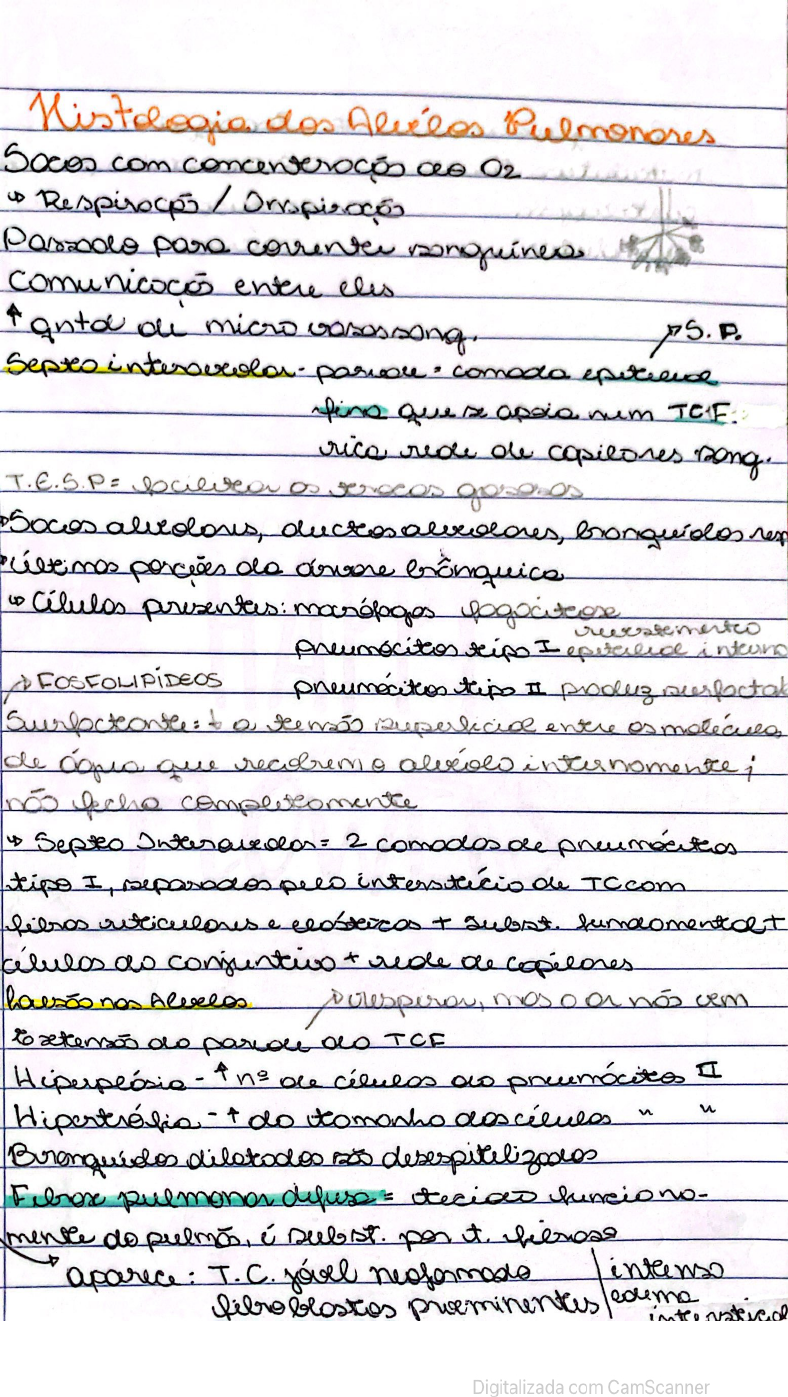 Histologia dos Alvéolos Pulmonares
Sacos com concentração de O2
↳ Respiração / Inspiração
Passado para corrente sanguínea
Comunicação entre eles
↑ qntd de micro vasos sang.
↗ S.P.
Septo interalveolar - parede = camada epitelial
fina que se apoia num TCF.
rica rede de capilares sang.
T.E.S.P = facilitar as trocas gasosas
Sacos alveolares, ductos alveolares, bronquíolos resp
Últimas porções da árvore brônquica
↳ Células presentes: macrófagos fagocitose
pneumócitos tipo I revestimento epitelial interno
↗ FOSFOLIPÍDEOS
pneumócitos tipo II produz surfactan
Surfactante: ↓ a tensão superficial entre as molécula
de água que recobrem o alvéolo internamente;
não fecha completamente
↳ Septo Interalveolar = 2 camadas de pneumócitos
tipo I, separados pelo interstício de TC com
fibras reticulares e elásticas + subst. fundamental +
células do conjuntivo + rede de capilares
Lesão nos Alvéolos
↗ respirar, mas o ar não vem
Extensão da parede do TCF
Hiperplásia - ↑ nº de células do pneumócitos II
Hipertrófia - ↑ do tamanho das células " "
Bronquíolos dilatados são desespitelizados
Fibrose pulmonar difusa = tecido funciona-
mente do pulmão, é subst. por t. fibroso
aparece: T.C. jóvel neoformado
fibroblastos proeminentes
intenso
edema
intersticial
Digitalizada com CamScanner